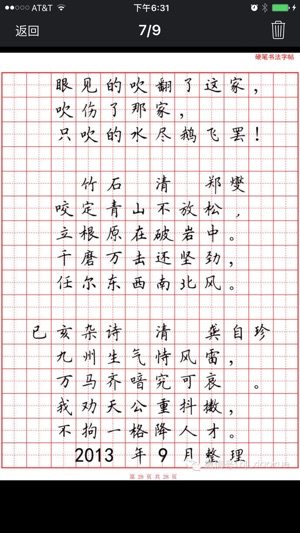 AT&T 下午6:31
返回 7/9
硬笔书法字帖
眼见的吹翻了这家，
吹伤了那家，
只吹的水尽鹅飞罢！
竹石 清 郑燮
咬定青山不放松，
立根原在破岩中。
千磨万击还坚劲，
任尔东西南北风。
己亥杂诗 清 龚自珍
九州生气恃风雷，
万马齐喑究可哀 。
我劝天公重抖擞，
不拘一格降人才。
2013 年 9 月整理